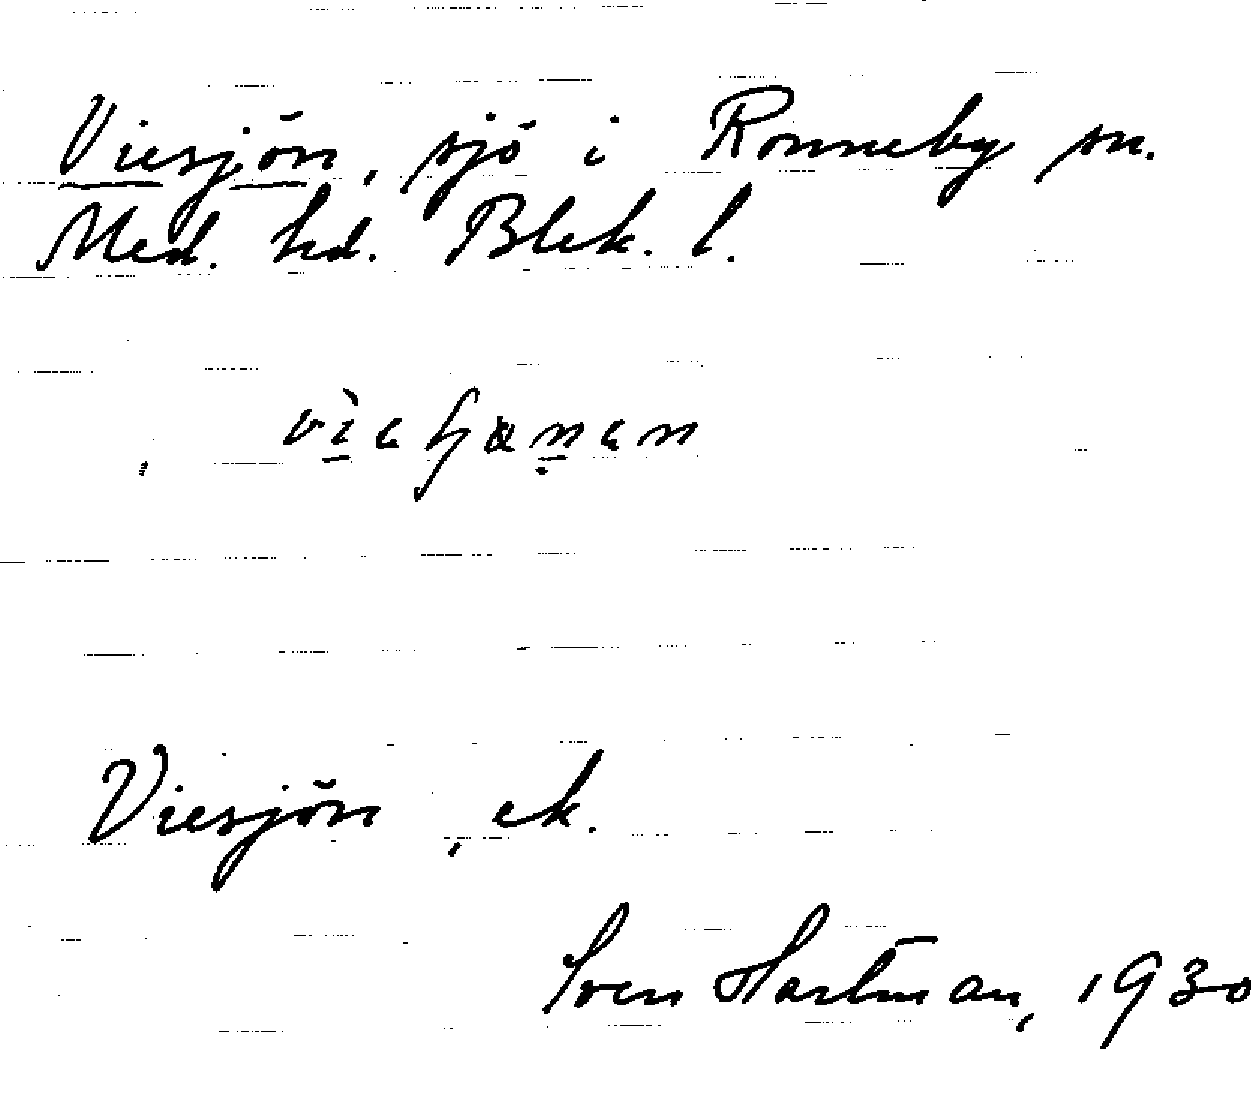 Viesjön, sjö i Ronneby sn.
Med. hd. Blek. l.
Viesjön, ek.
Sven Hartman, 1930